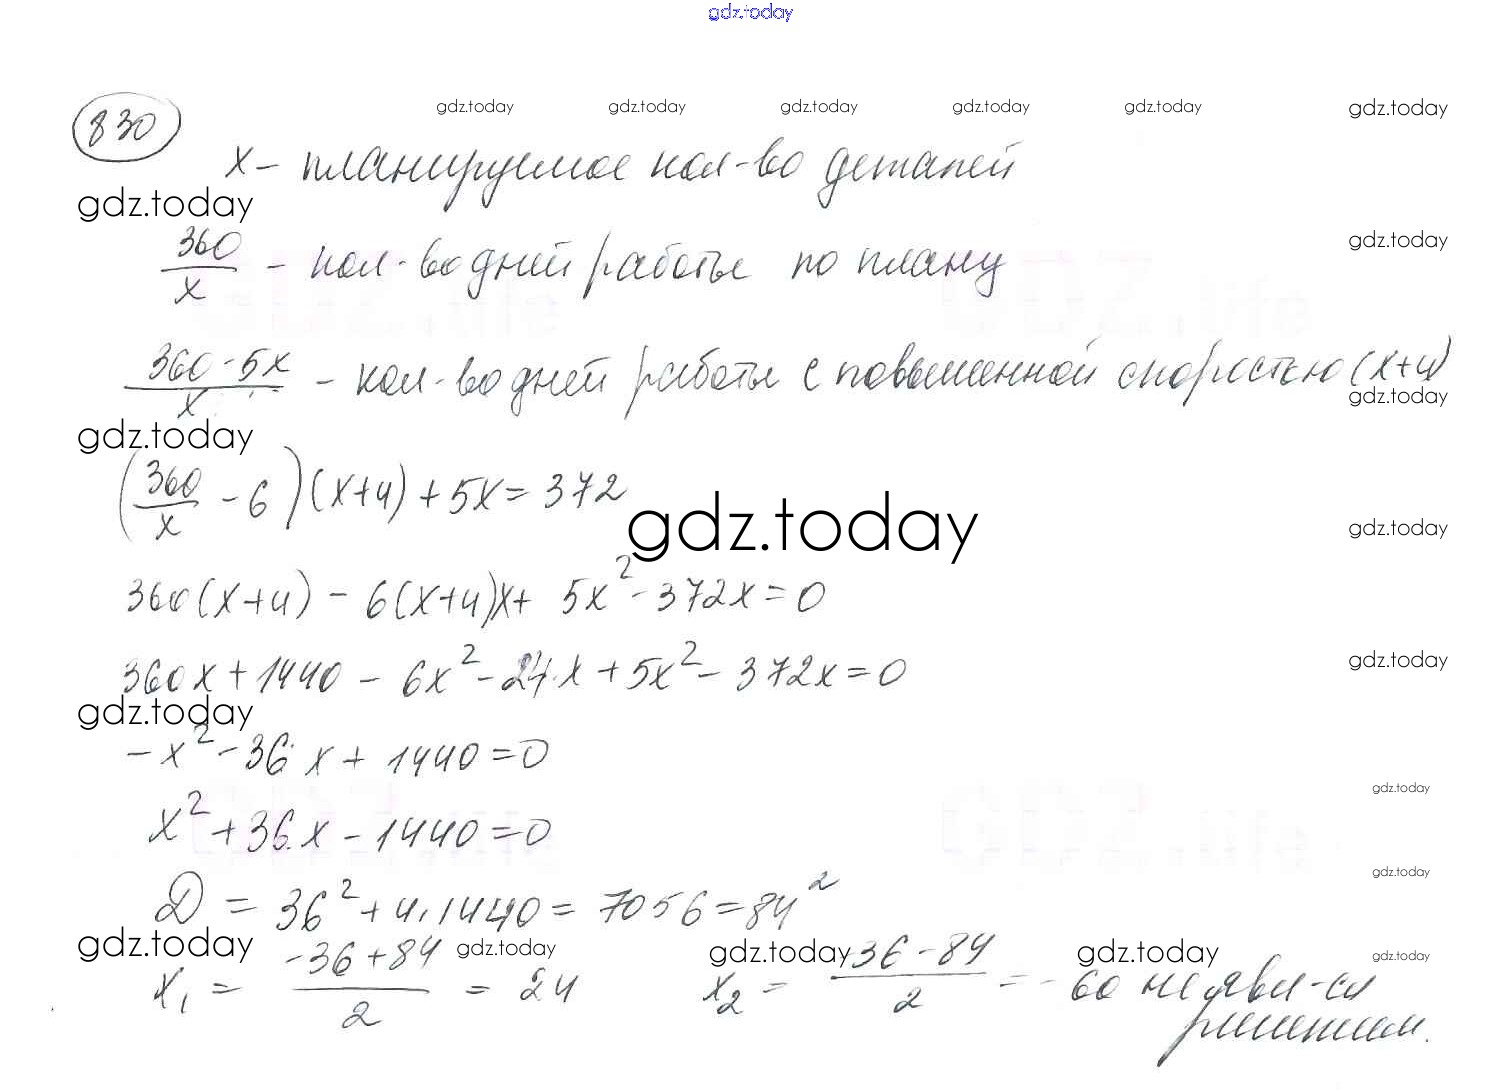 gdz.today
830
gdz.today gdz.today gdz.today gdz.today gdz.today gdz.today
x – планируемое кол-во деталей
gdz.today
360/x – кол-во дней работы по плану
gdz.today
(360-5x)/x – кол-во дней работы с повышенной скоростью (x+4)
gdz.today
gdz.today
(360/x - 6)(x+4) + 5x = 372
gdz.today
gdz.today
360(x+4) - 6(x+4)x + 5x² - 372x = 0
360x + 1440 - 6x² - 24x + 5x² - 372x = 0
gdz.today
gdz.today
-x² - 36x + 1440 = 0
gdz.today
x² + 36x - 1440 = 0
gdz.today
D = 36² + 4·1440 = 7056 = 84²
gdz.today gdz.today gdz.today gdz.today gdz.today
x₁ = (-36+84)/2 = 24 x₂ = (-36-84)/2 = -60 не явл-ся
решением.